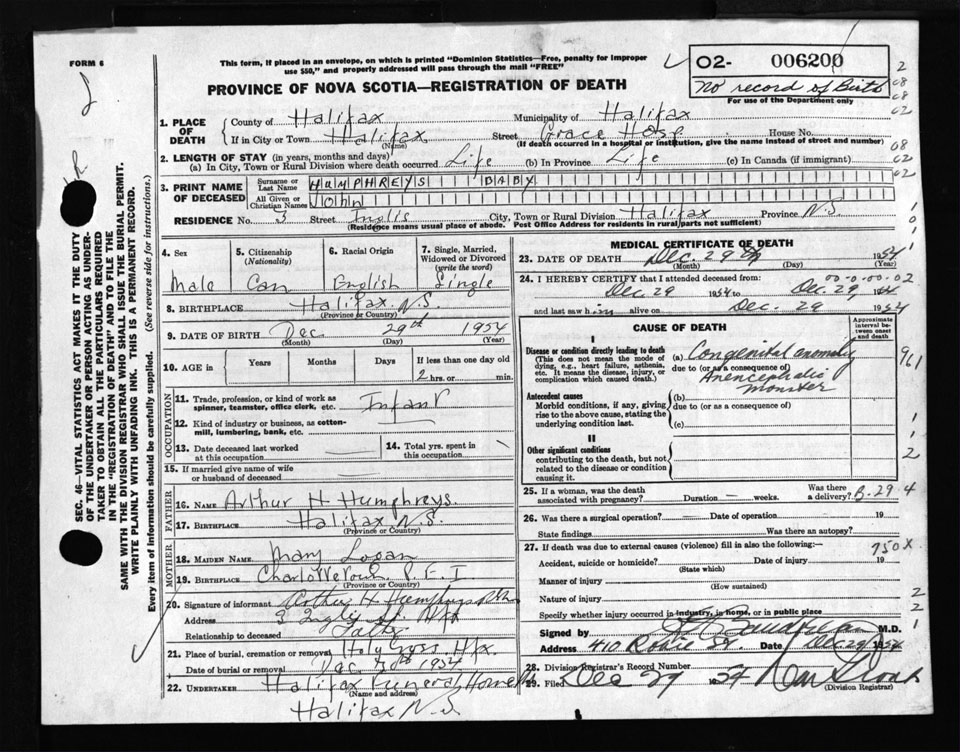 FORM 6
This form, if placed in an envelope, on which is printed "Dominion Statistics—Free, penalty for improper
use $50," and properly addressed will pass through the mail "FREE"
O2- 006200
No record of Birth
For use of the Department only
PROVINCE OF NOVA SCOTIA—REGISTRATION OF DEATH
1. PLACE OF DEATH
County of Halifax Municipality of Halifax
If in City or Town Halifax Street Grace Hosp House No.
(Name) (If death occurred in a hospital or institution, give the name instead of street and number)
2. LENGTH OF STAY (in years, months and days)
(a) In City, Town or Rural Division where death occurred Life (b) In Province Life (c) In Canada (if immigrant)
3. PRINT NAME OF DECEASED
Surname or Last Name HUMPHREYS BABY
All Given or Christian Names John
RESIDENCE No. 3 Street Inglis City, Town or Rural Division Halifax Province N.S.
(Residence means usual place of abode. Post Office Address for residents in rural parts not sufficient)
4. Sex
Male
5. Citizenship
(Nationality)
Can
6. Racial Origin
English
7. Single, Married,
Widowed or Divorced
(write the word)
Single
8. BIRTHPLACE Halifax N.S.
(Province or Country)
9. DATE OF BIRTH Dec 29th 1954
(Month) (Day) (Year)
10. AGE in Years Months Days If less than one day old
2 hrs. or min.
OCCUPATION
11. Trade, profession, or kind of work as
spinner, teamster, office clerk, etc. Infant
12. Kind of industry or business, as cotton-
mill, lumbering, bank, etc.
13. Date deceased last worked
at this occupation
14. Total yrs. spent in
this occupation
15. If married give name of wife
or husband of deceased
FATHER
16. NAME Arthur H Humphreys
17. BIRTHPLACE Halifax N.S.
(Province or Country)
MOTHER
18. MAIDEN NAME Mary Logan
19. BIRTHPLACE Charlottetown P.E.I
(Province or Country)
20. Signature of informant Arthur H Humphreys
Address 3 Inglis St. Hfx
Relationship to deceased Father
21. Place of burial, cremation or removal Holy Cross Hfx
Date of burial or removal Dec 30th 1954
22. UNDERTAKER Halifax Funeral Home
(Name and address)
Halifax N.S
MEDICAL CERTIFICATE OF DEATH
23. DATE OF DEATH Dec. 29th 1954
(Month) (Day) (Year)
24. I HEREBY CERTIFY that I attended deceased from: 00-0-00-02
Dec 29 1954 to Dec. 29, 1954
and last saw him alive on Dec. 29 1954
CAUSE OF DEATH
Approximate interval between onset and death
I
Disease or condition directly leading to death
(This does not mean the mode of
dying, e.g., heart failure, asthenia,
etc. It means the disease, injury, or
complication which caused death.)
(a) Congenital anomaly
due to (or as a consequence of)
Anencephalic
monster
Antecedent causes
Morbid conditions, if any, giving
rise to the above cause, stating the
underlying condition last.
(b)
due to (or as a consequence of)
(c)
II
Other significant conditions
contributing to the death, but not
related to the disease or condition
causing it.
25. If a woman, was the death
associated with pregnancy? Duration — weeks. Was there a delivery? B-29 4
26. Was there a surgical operation? — Date of operation 19
State findings Was there an autopsy?
27. If death was due to external causes (violence) fill in also the following:— 750X
Accident, suicide or homicide? Date of injury 19
(State which)
Manner of injury
(How sustained)
Nature of injury
Specify whether injury occurred in industry, in home, or in public place
Signed by M.D.
Address 410 Robie St. Date Dec. 29 1954
28. Division Registrar's Record Number
29. Filed Dec 29 1954
(Division Registrar)
SEC. 46—VITAL STATISTICS ACT MAKES IT THE DUTY
OF THE UNDERTAKER OR PERSON ACTING AS UNDER-
TAKER TO OBTAIN ALL THE PARTICULARS REQUIRED
IN THE "REGISTRATION OF DEATH" AND TO FILE THE
SAME WITH THE DIVISION REGISTRAR WHO SHALL ISSUE THE BURIAL PERMIT.
WRITE PLAINLY WITH UNFADING INK. THIS IS A PERMANENT RECORD.
Every item of Information should be carefully supplied. (See reverse side for instructions.)